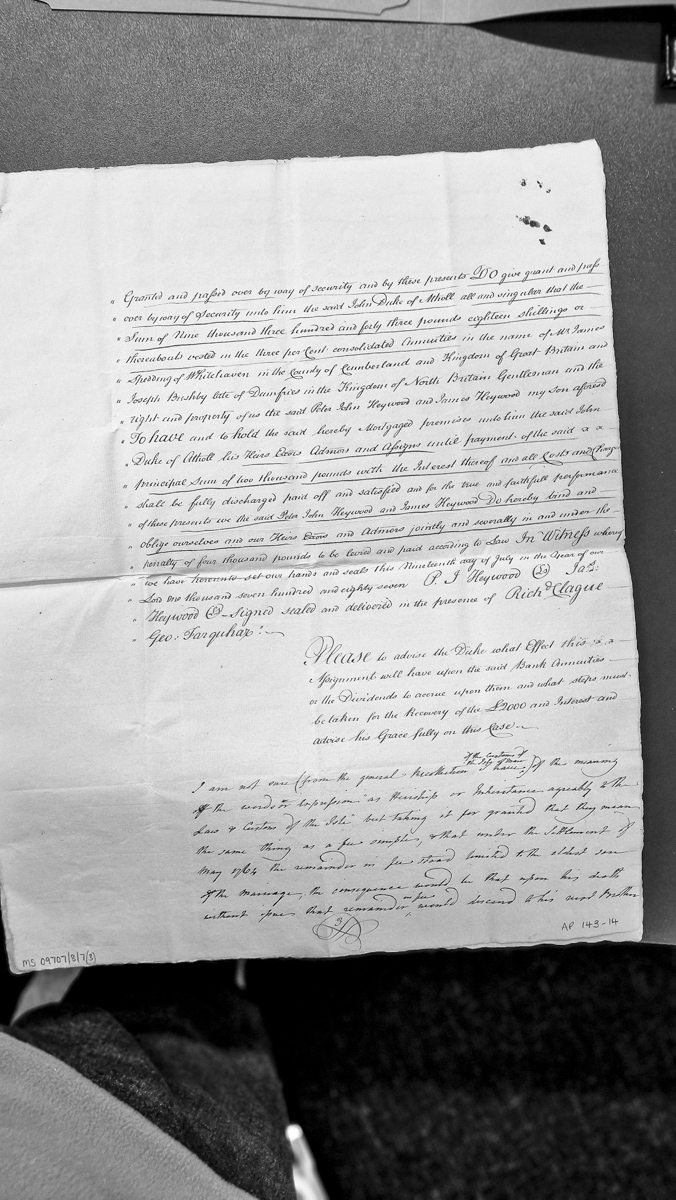 " Granted and passed over by way of security and by these presents DO give grant and pass
" over by way of Security unto him the said John Duke of Atholl all and singular that the
" Sum of Nine thousand three hundred and forty three pounds eighteen shillings or
" thereabouts vested in the three per Cent consolidated Annuities in the name of Mr. James
" Spedding of Whitehaven in the County of Cumberland and Kingdom of Great Britain and
" Joseph Bushby late of Dumfries in the Kingdom of North Britain Gentleman and the
" right and property of us the said Peter John Heywood and James Heywood my son aforesd
" To have and to hold the said hereby Mortgaged premises unto him the said John
" Duke of Atholl his Heirs Exors Admors and Assigns until payment of the said
" principal Sum of two thousand pounds with the Interest thereof and all Costs and Charges
" shall be fully discharged paid off and satisfied and for the true and faithfull performance
" of these presents we the said Peter John Heywood and James Heywood Do hereby bind and
" oblige ourselves and our Heirs Exors and Admors jointly and severally in and under the
" penalty of four thousand pounds to be levied and paid according to Law In Witness whereof
" we have hereunto set our hands and seals this Nineteenth day of July in the Year of our
" Lord One thousand seven hundred and eighty seven P. J Heywood (LS) Jas:
" Heywood (LS) – Signed sealed and delivered in the presence of Richd Clague
" Geo: Farquhar:
Please to advise the Duke what Effect this
Assignment will have upon the said Bank Annuities
or the Dividends to accrue upon them and what steps must
be taken for the Recovery of the £2000 and Interest and
advise his Grace fully on this Case
of the Customs of
the Isle of Man
I am not sure (from the general Recollection I have) of the meaning
of the words or Expression as Heirship or Inheritance agreably to the
Laws & Customs of the Isle but taking it for granted that they mean
the same thing as a fee simple, & that under the Settlement of
May 1764 the remainder in fee stood limited to the eldest son
of the Marriage, the consequence would be that upon his death
without issue that remainder in fee would descend to his next Brother
3
AP 143-14
MS 09707/8/7(3)